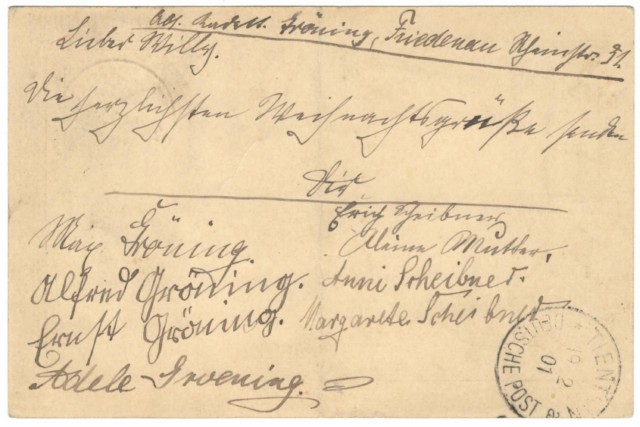 Abs. Kadett. Gröning, Friedenau Rheinstr. 51.
Lieber Willy.
Die herzlichsten Weihnachtsgrüße senden
Dir
Erich Scheibner
Max Gröning. Deine Mutter.
Alfred Gröning. Anni Scheibner.
Ernst Gröning. Margarete Scheibner
Adele Groening.
TIENTSIN
DEUTSCHE POST
19 2 01